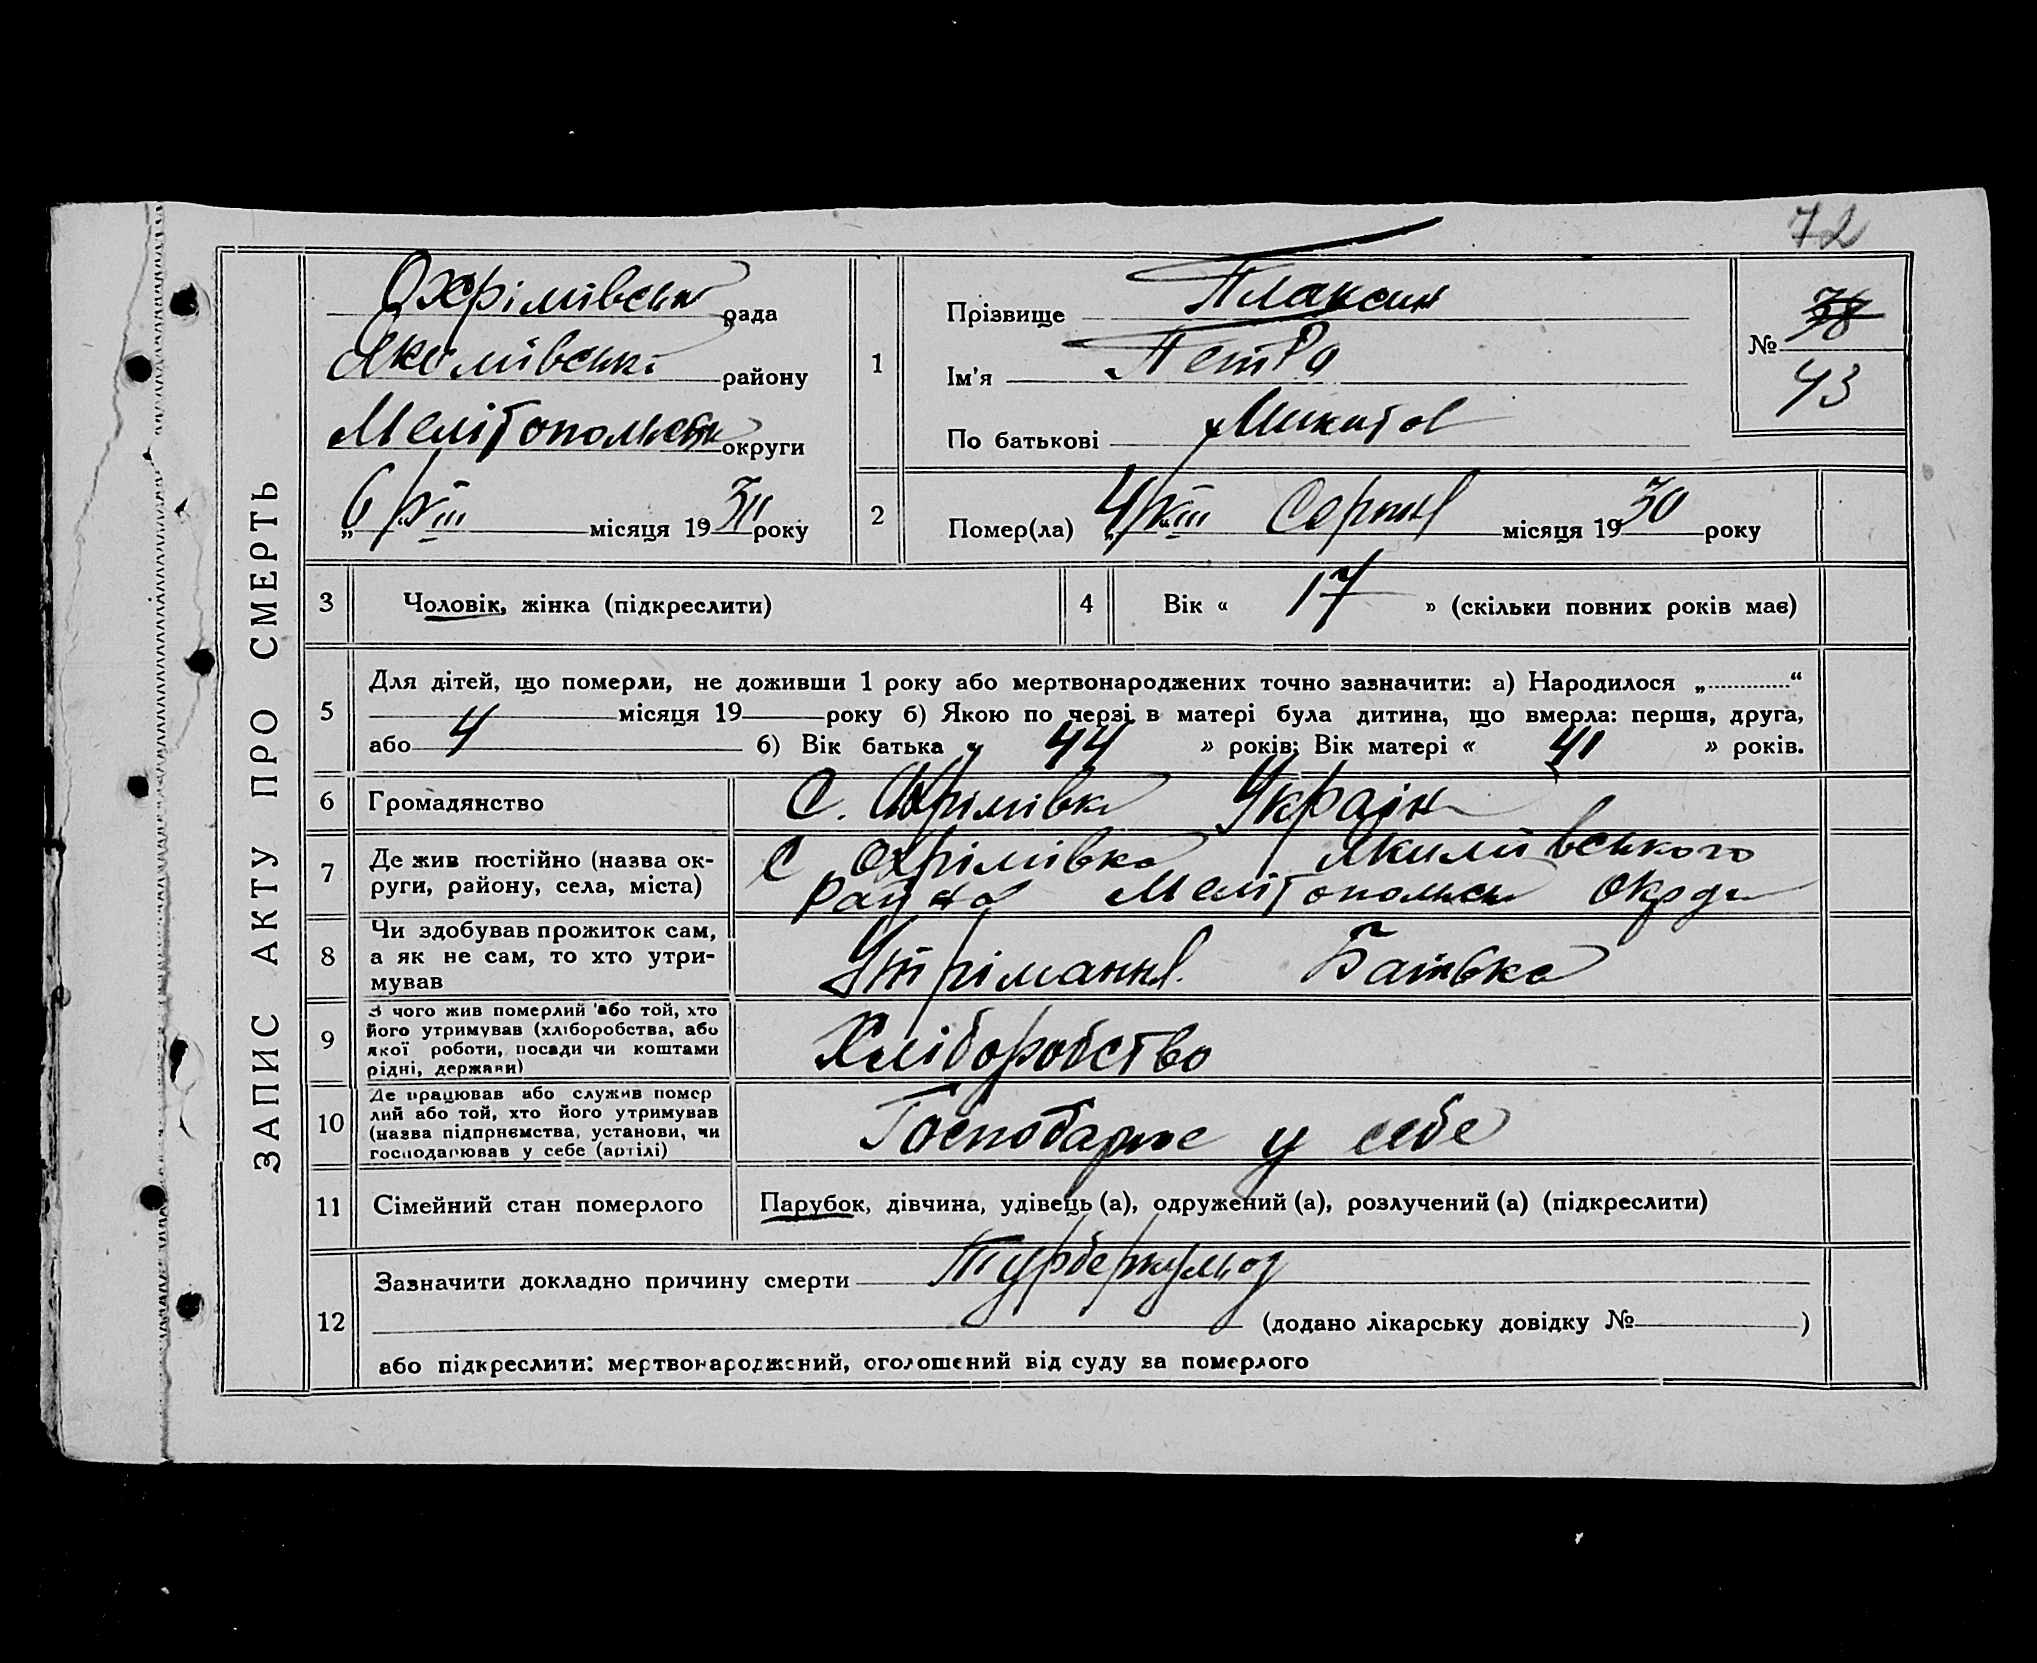 72
ЗАПИС АКТУ ПРО СМЕРТЬ
Охрімівська рада
Якимівськ. району
Мелітопольськ округи
„6/VIII місяця 1930 року
1
Прізвище Плаксин
Ім'я Петро
По батькові Микитов
№ 78
43
2
Помер(ла) „4/VIII Серпня місяця 1930 року
3
Чоловік, жінка (підкреслити)
4
Вік « 17 » (скільки повних років має)
5
Для дітей, що померли, не доживши 1 року або мертвонароджених точно зазначити: а) Народилося „ “
місяця 19 року б) Якою по черзі в матері була дитина, що вмерла: перша, друга,
або 4 б) Вік батька « 44 » років; Вік матері « 41 » років.
6
Громадянство
С. Охрімівка Україн
7
Де жив постійно (назва ок-
руги, району, села, міста)
С Охрімівка Якимівського
району Мелітопольськ округи
8
Чи здобував прожиток сам,
а як не сам, то хто утри-
мував
Утрімання Батька
9
З чого жив померлий або той, хто
його утримував (хліборобства, або
якої роботи, посади чи коштами
рідні, держави)
Хліборобство
10
Де працював або служив помер
лий або той, хто його утримував
(назва підприємства, установи, чи
господарював у себе (артілі)
Господарює у себе
11
Сімейний стан померлого
Парубок, дівчина, удівець (а), одружений (а), розлучений (а) (підкреслити)
12
Зазначити докладно причину смерти Турберкульоз
(додано лікарську довідку № )
або підкреслити: мертвонароджений, оголошений від суду за померлого